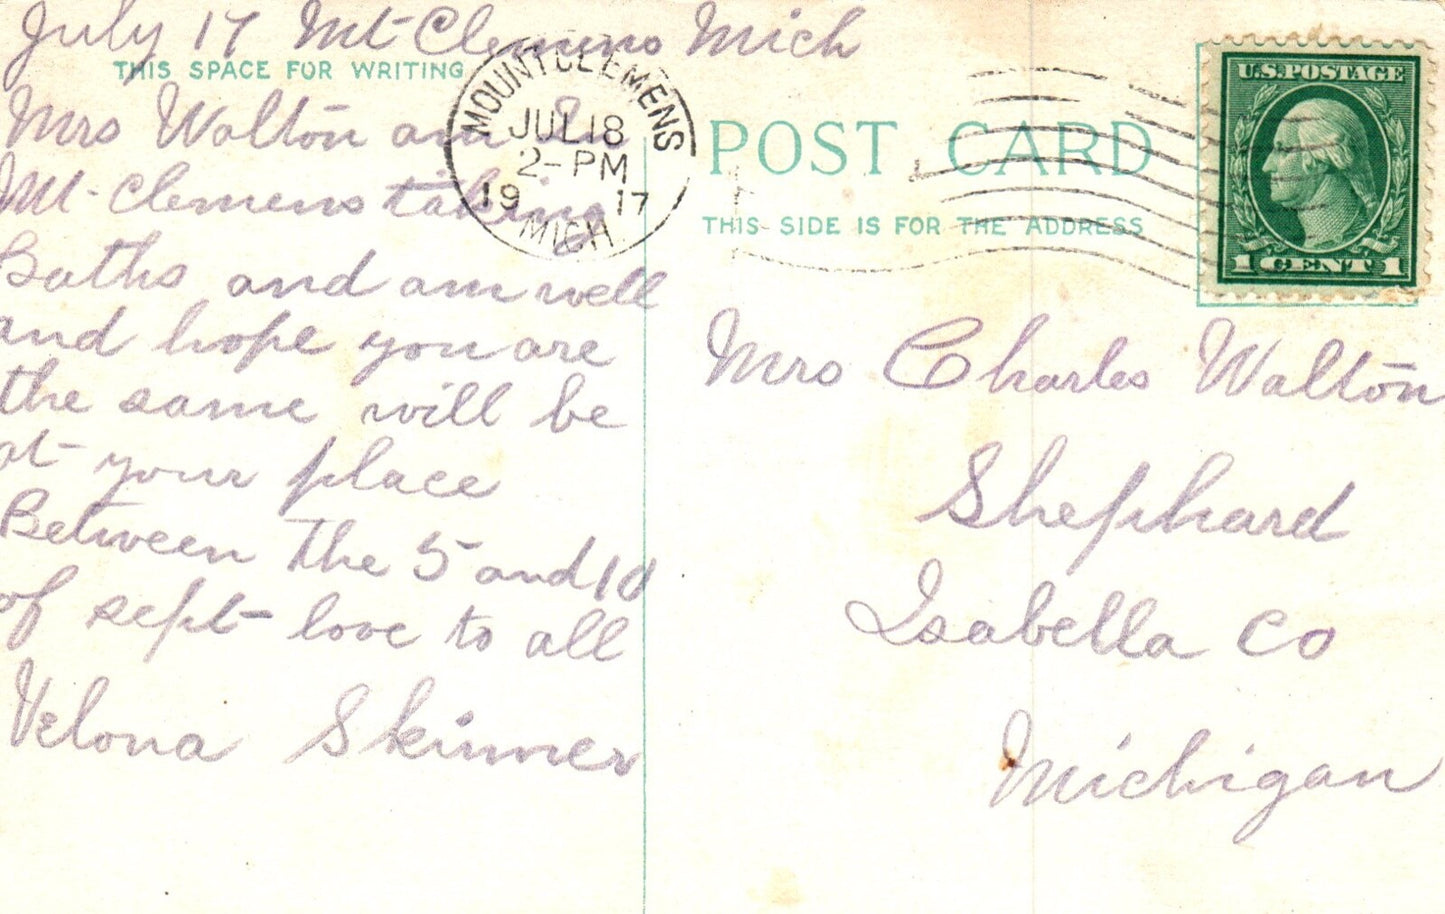 July 17 Mt Clemens Mich
THIS SPACE FOR WRITING
Mrs Walton am in
Mt-Clemens taking
Baths and am well
and hope you are
the same will be
at your place
Between the 5 and 10
of sept - love to all
Velona Skinner
MOUNT CLEMENS
JUL 18
2-PM
19 17
MICH
POST CARD
THIS SIDE IS FOR THE ADDRESS
U.S. POSTAGE
1 CENT 1
Mrs Charles Walton
Shephard
Isabella Co
Michigan